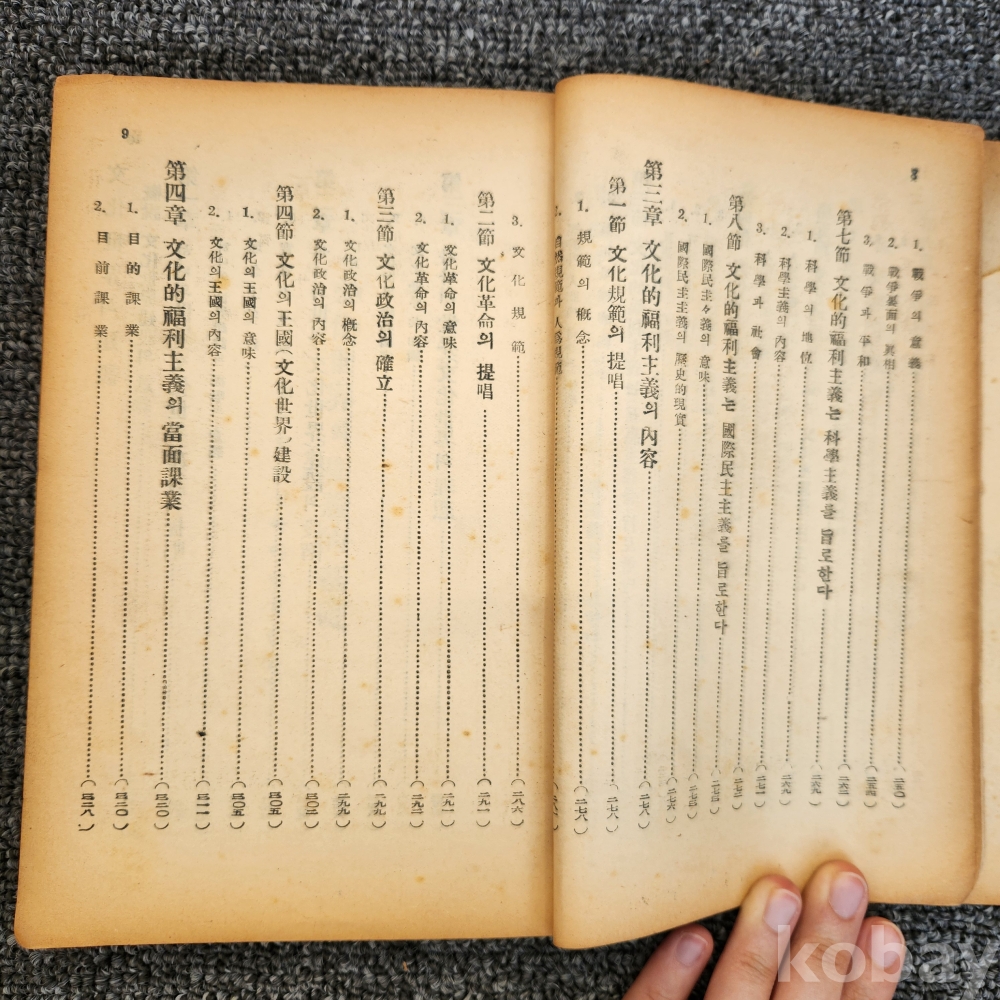 8
1. 戰爭의 意義 (二五〇)
2. 戰爭裏面의 眞相 (二五四)
3. 戰爭과 平和 (二六二)
第七節 文化的福利主義는 科學主義를 旨로한다 (二六九)
1. 科學의 地位 (二六九)
2. 科學主義의 內容
3. 科學과 社會 (二七一)
第八節 文化的福利主義는 國際民主主義를 旨로한다
1. 國際民主々義의 意味 (二七三)
2. 國際民主主義의 歷史的現實 (二七六)
第三章 文化的福利主義의 內容 (二七八)
第一節 文化規範의 提唱 (二七八)
1. 規範의 概念 (二七八)
2. 自然規範과 人爲規範
9
3. 文化規範 (二八六)
第二節 文化革命의 提唱 (二九一)
1. 文化革命의 意味 (二九一)
2. 文化革命의 內容 (二九二)
第三節 文化政治의 確立 (二九九)
1. 文化政治의 概念 (二九九)
2. 文化政治의 內容 (三〇二)
第四節 文化의 王國(文化世界)建設 (三〇五)
1. 文化의 王國의 意味 (三〇五)
2. 文化의 王國의 內容 (三一一)
第四章 文化的福利主義의 當面課業 (三二〇)
1. 目的課業 (三二〇)
2. 目前課業 (三二八)
kobay